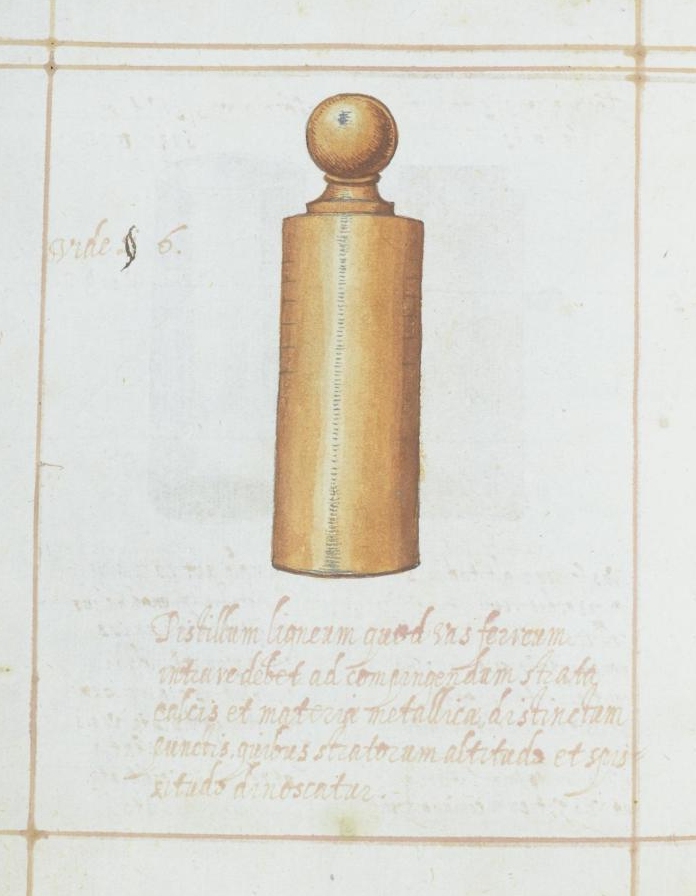 Vide § 6.
Pistillum ligneum quod vas ferreum
intrare debet ad compingendam strata
calcis et materiæ metallica, distinctum
punctis, quibus stratorum altitudo et spis-
situdo dinoscatur.